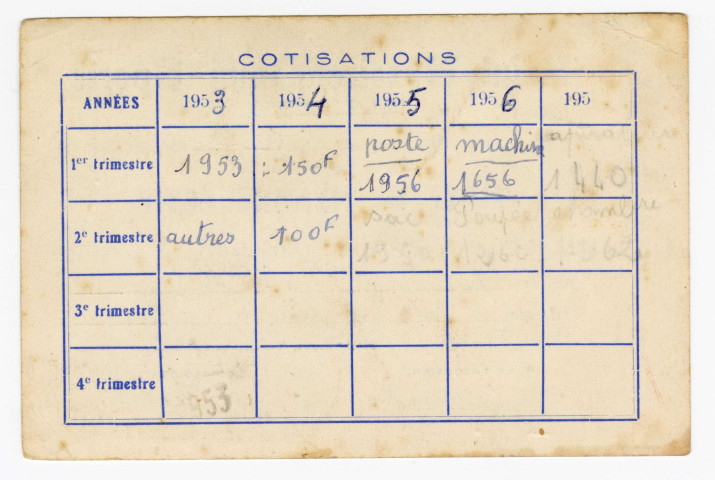 COTISATIONS
ANNÉES 1953 1954 1955 1956 195
1er trimestre 1953 : 150F poste 1956 machine 1656 1440
2e trimestre autres 100F sac Poupée
3e trimestre
4e trimestre 953